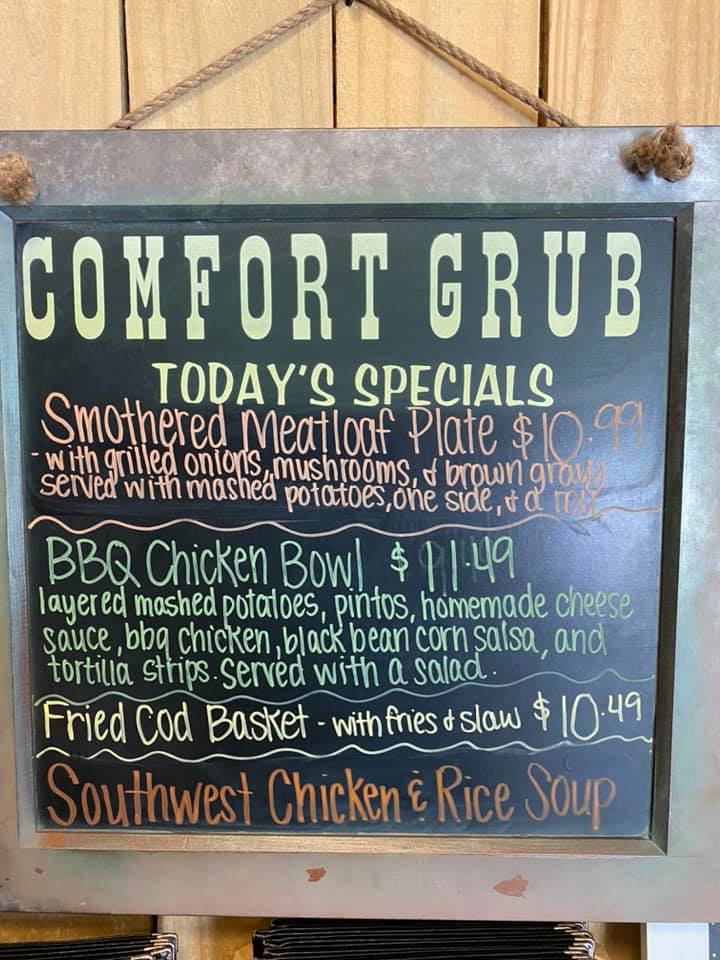 COMFORT GRUB
TODAY'S SPECIALS
Smothered Meatloaf Plate $10.99
- with grilled onions, mushrooms, & brown gravy
served with mashed potatoes, one side, & a roll
BBQ Chicken Bowl $11.49
layered mashed potatoes, pintos, homemade cheese
sauce, bbq chicken, black bean corn salsa, and
tortilla strips. Served with a salad.
Fried Cod Basket - with fries & slaw $10.49
Southwest Chicken & Rice Soup